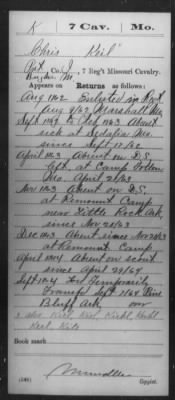 K 7 Cav. Mo.
Chris Keil
Pvt. Co. I, 7 Reg't Missouri Cavalry.
Appears on Returns as follows:
Aug 1862 Enlisted in Regt
Aug 9/62 Marshall Mo
Sept 1862 to Feb 1863 Absent
sick at Sedalia Mo.
since Sept 17/62
April 1863 Absent on D.S.
at Camp
Mo. April 23/63
Nov 1863 Absent on D.S.
at Remount Camp
near Little Rock Ark
since Nov 20/63
Dec 1863 Absent since Nov 20/63
at Remount Camp
April 1864 Absent on scout
since April 29/64
Sept 1864 Temporarily
Transfd Sept 1864 Pine
Bluff Ark over
Book mark:
(546) Copyist.